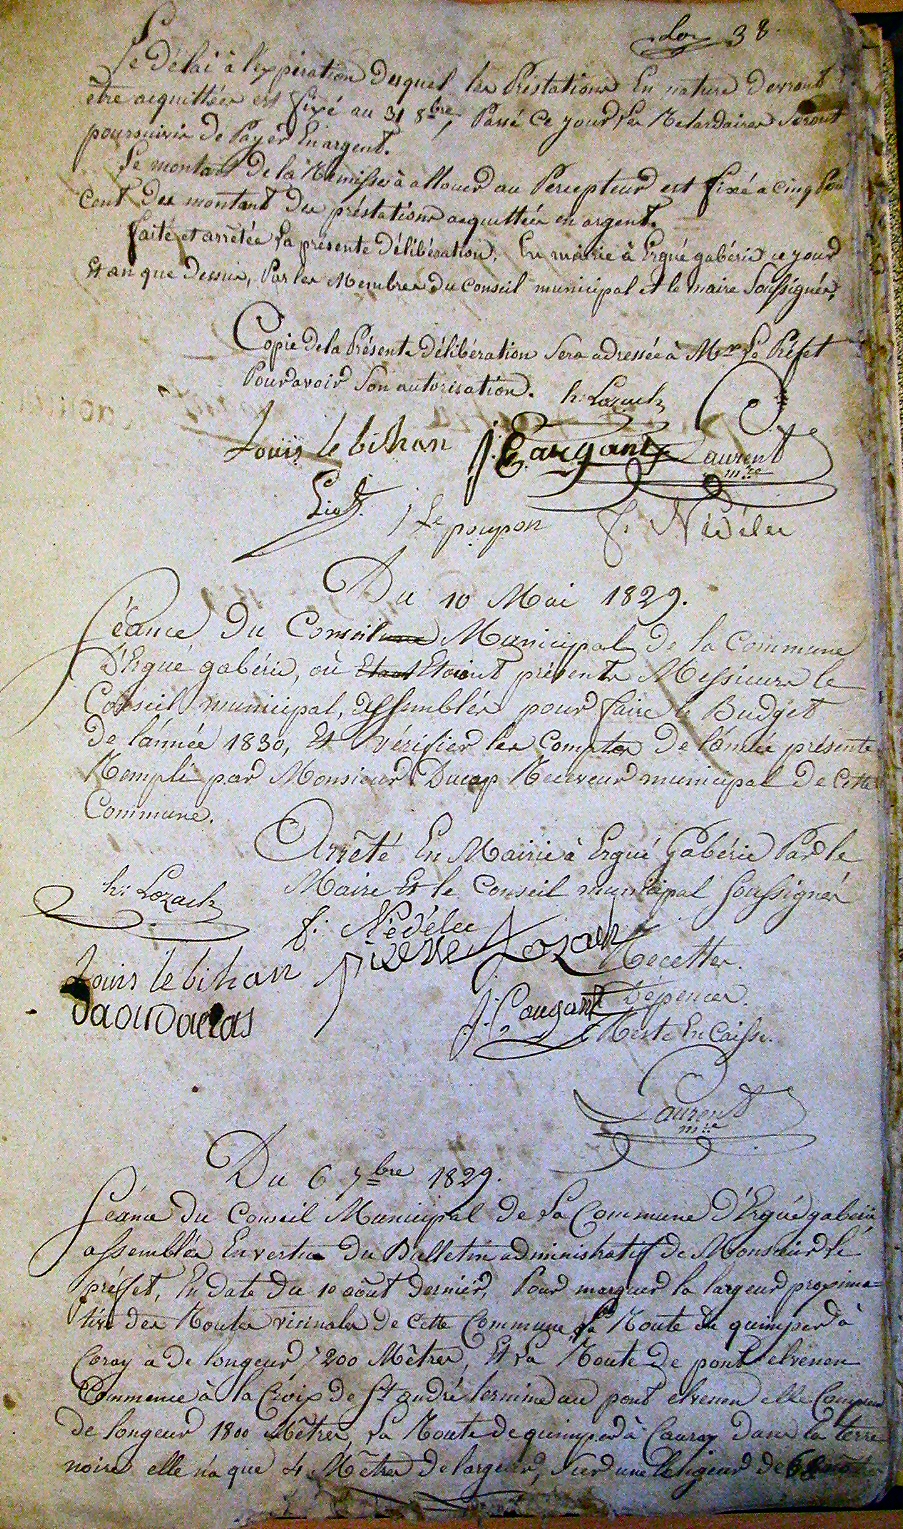 38.
Le délai à l'expiration duquel les Préstations En nature devront
être acquittées est fixé au 31 8bre, Passé Ce jour les Retardaires Seront
poursuivis de Payer En argent.
Le montant de la Remisse à allouer au Percepteur est fixé a cinq Pour
Cent des montant des préstations acquittées en argent.
faite et arrêtée La présente Délibération, En mairie à Ergué gabéric ce jour
Et an que dessus, Par les Membres du Conseil municipal et le maire Soussignés.
Copie de la Présente délibération Sera adressée à Mr Le Préfet
Pour avoir Son autorisation. h: Lozach
Louis le bihan J: Gargant Laurent
mre
Liot J Le poupon f. Nédélec
Du 10 Mai 1829.
Séance du Conseil Municipal de la Commune
D'Ergué gabéric, où Etant Etoient présents Messieurs le
Conseil municipal, assemblés pour faire le Budget
de l'année 1830, Et vérifier les Comptes de l'année présente
Rempli par Monsieur Ducap Receveur municipal de Cette
Commune.
Arrêté En Mairie à Ergué Gabéric Par le
Maire Et le Conseil municipal Soussignés
h: Lozach
f. Nédélec
Pierre Lozach Recettes.
Louis le bihan
Dépences.
J: Gougant
Reste En Caisse.
Laurent
mre
Du 6 7bre 1829.
Séance du Conseil Municipal de La Commune d'Ergué gabéric
assemblés En vertu du Bulletin administratif de Monsieur le
préfet, En date du 10 août dernier, Pour marquer la largeur proxima=
tive des Routes vicinales de Cette Commune, La Route de quimper à
Coray a de longeur 7200 Mètres, Et La Route de pont elvenen
Commence à la Croix de St andré termine au pont elvenen elle Comprend
de longeur 1800 Mètres La Route de quimper à Cauray dans la terre
noire elle n'a que 4 Mètres de largeur, Sur une longeur de